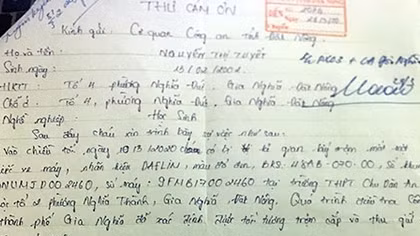 THƯ CẢM ƠN
Kính gửi: Cơ quan Công an tỉnh Đắk Nông.
Họ và tên: NGUYỄN THỊ TUYẾT
Sinh ngày: 13/02/2002.
HKTT: Tổ 4, phường Nghĩa Đức, Gia Nghĩa - Đắk Nông
Chỗ ở: Tổ 4, phường Nghĩa Đức, Gia Nghĩa - Đắk Nông
Nghề nghiệp: Học Sinh
Sau đây cháu xin trình bày sự việc như sau:
Vào chiều tối ngày 10/3/2020 bị kẻ gian lấy trộm một
xe máy, nhãn hiệu DAELIM, màu BKS: 48AB-070.00, Số
NUMJD00 2460, số máy: 9FMB1700 2460 tại trường THPT Chu Văn An
tổ 2 phường Nghĩa Thành, Gia Nghĩa Đắk Nông. Quá trình điều tra Công
thành phố Gia Nghĩa đã xác định được đối tượng trộm cắp và thu giữ